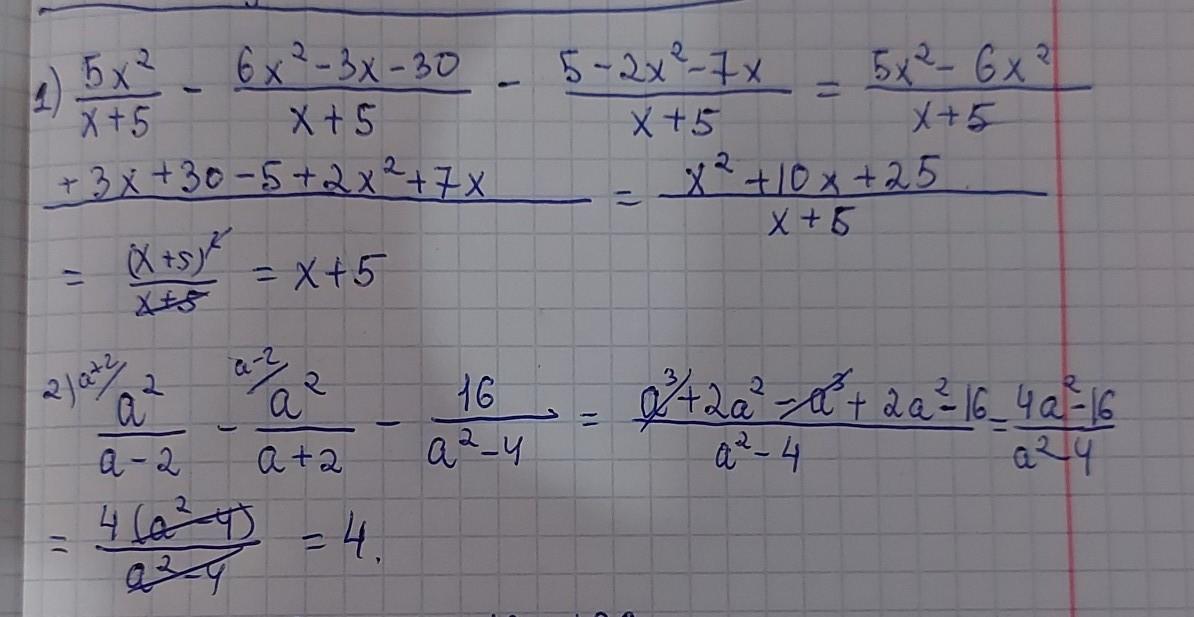 1) 5x²/(x+5) - (6x²-3x-30)/(x+5) - (5-2x²-7x)/(x+5) = (5x²-6x²)/(x+5)
(+3x+30-5+2x²+7x) = (x²+10x+25)/(x+5)
= (x+5)²/(x+5) = x+5
2) a+2/ a²/(a-2) - a-2/ a²/(a+2) - 16/(a²-4) = (a³+2a²-a³+2a²-16)/(a²-4) = (4a²-16)/(a²-4)
= 4(a²-4)/(a²-4) = 4.